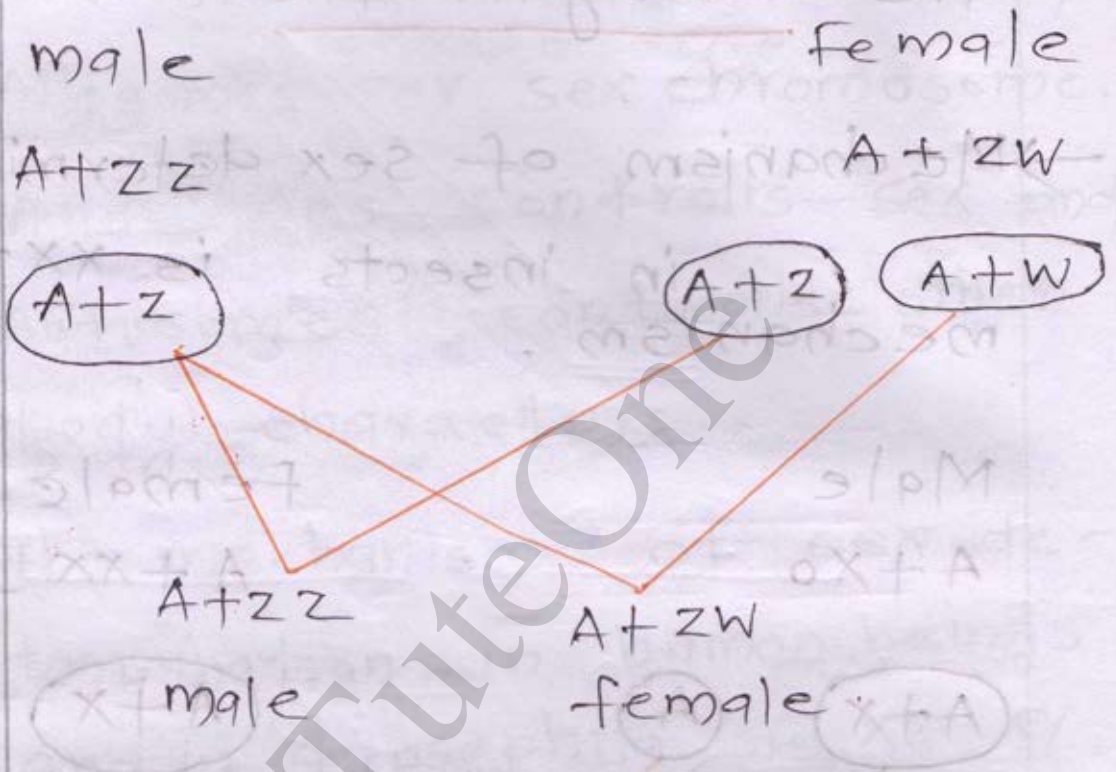 male female
A+ZZ A+ZW
A+Z A+Z A+W
A+ZZ A+ZW
male female
TuteOne